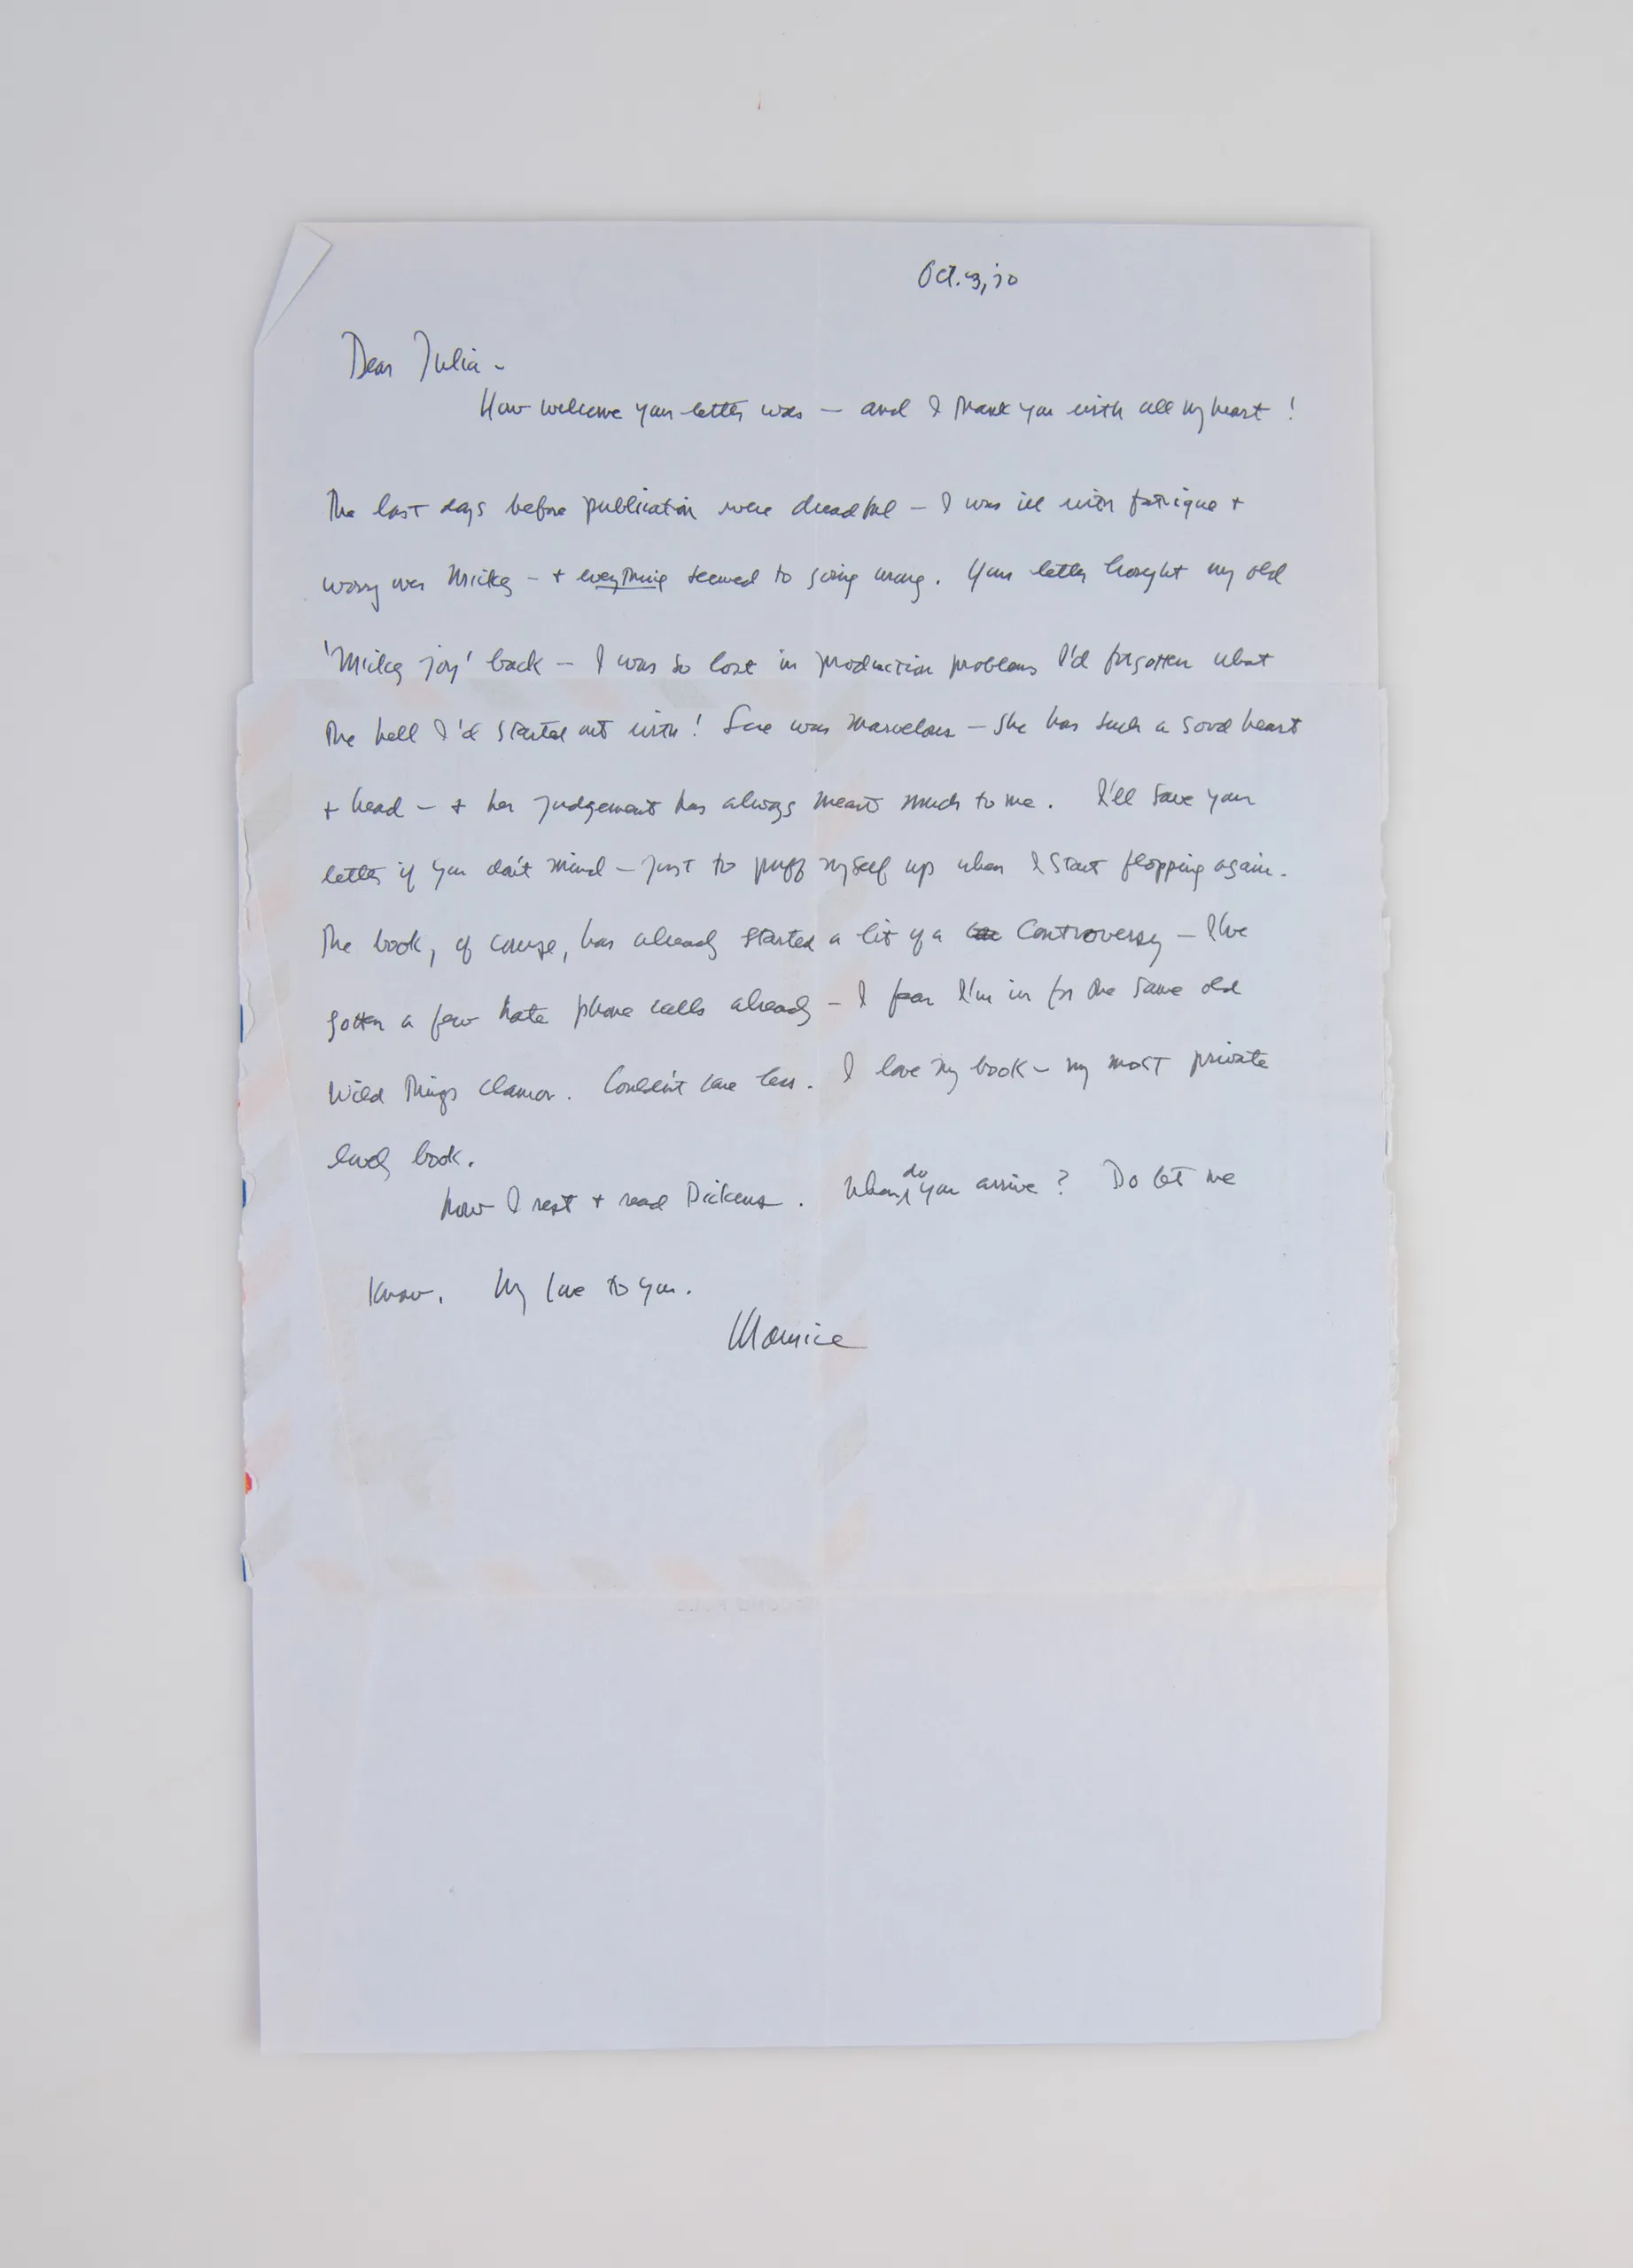 Oct. 3, 70
Dear Julia -
How welcome your letter was — and I thank you with all my heart!
The last days before publication were dreadful — I was ill with fatigue +
worry over Mickey — + everything seemed to going wrong. Your letter brought my old
'Mickey joy' back — I was so lost in production problems I'd forgotten what
the hell I'd started out with! Sue was marvelous — she has such a good heart
+ head — + her judgement has always meant much to me. I'll save your
letter if you don't mind — just to puff myself up when I start flopping again.
The book, of course, has already started a bit of a controversy — I've
gotten a few hate phone calls already — I fear I'm in for the same old
Wild Things clamor. Couldn't care less. I love my book — my most private
lovely book.
Now I rest + read Dickens. When do you arrive? Do let me
know. My love to you.
Maurice